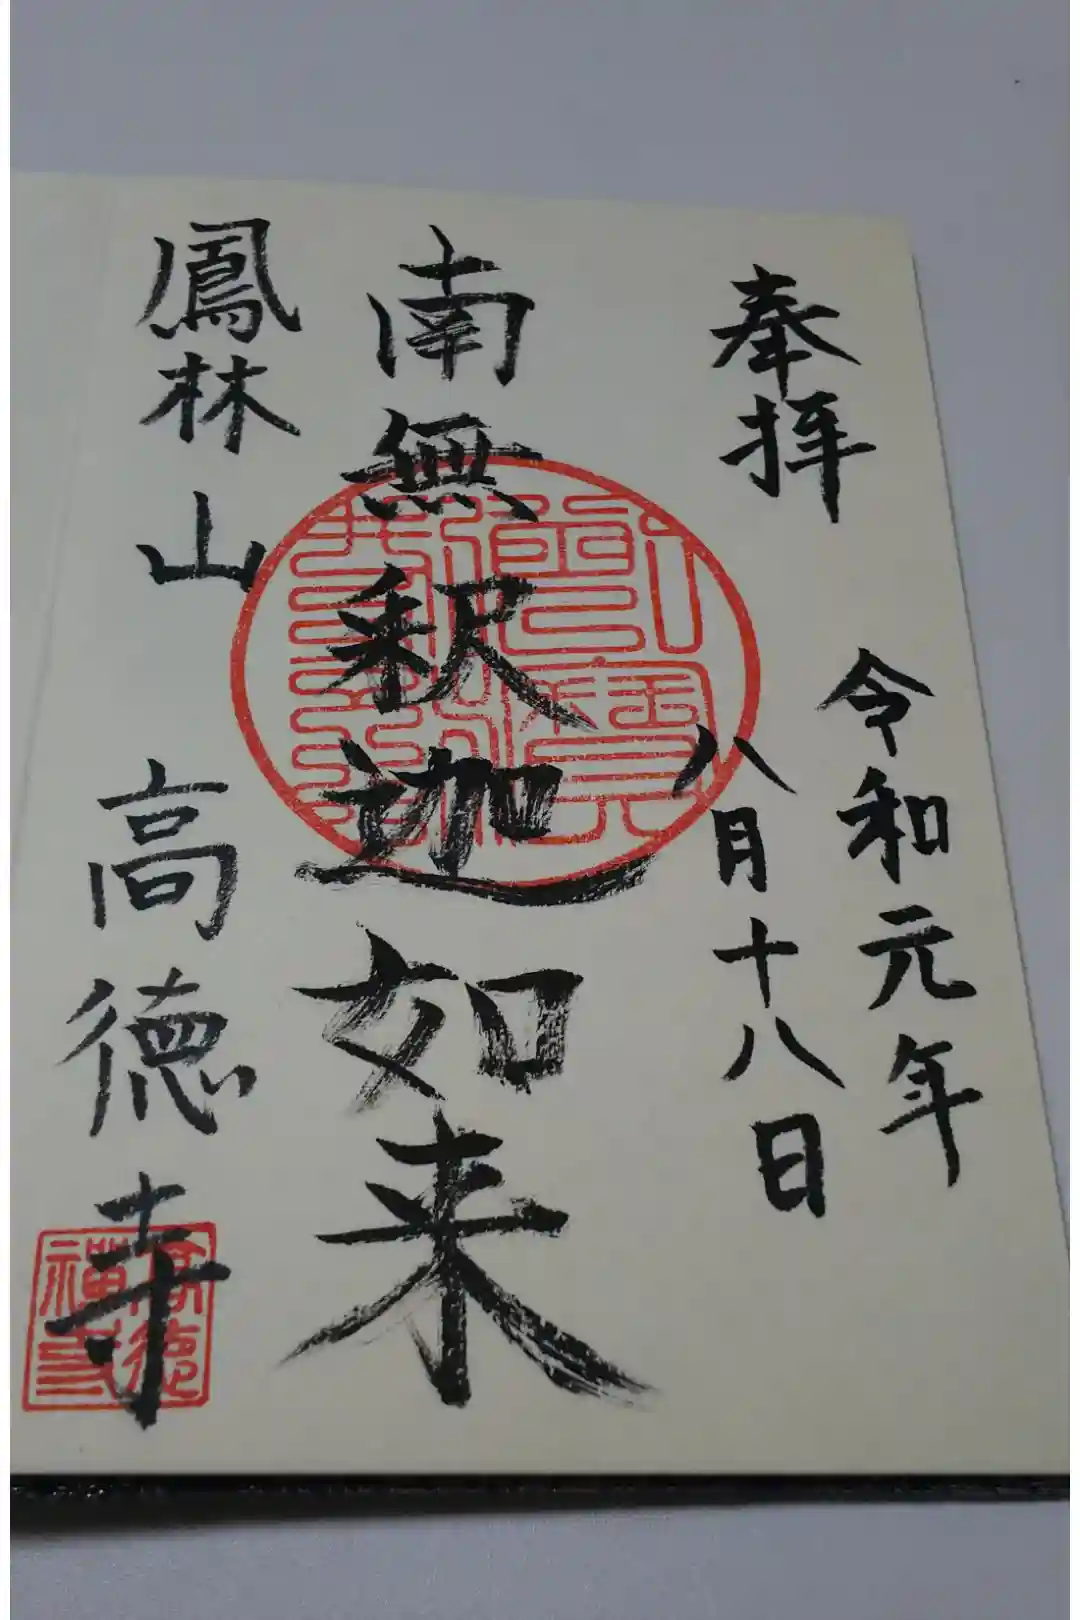 奉拝
令和元年
八月十八日
南無釈迦如来
鳳林山 高徳寺